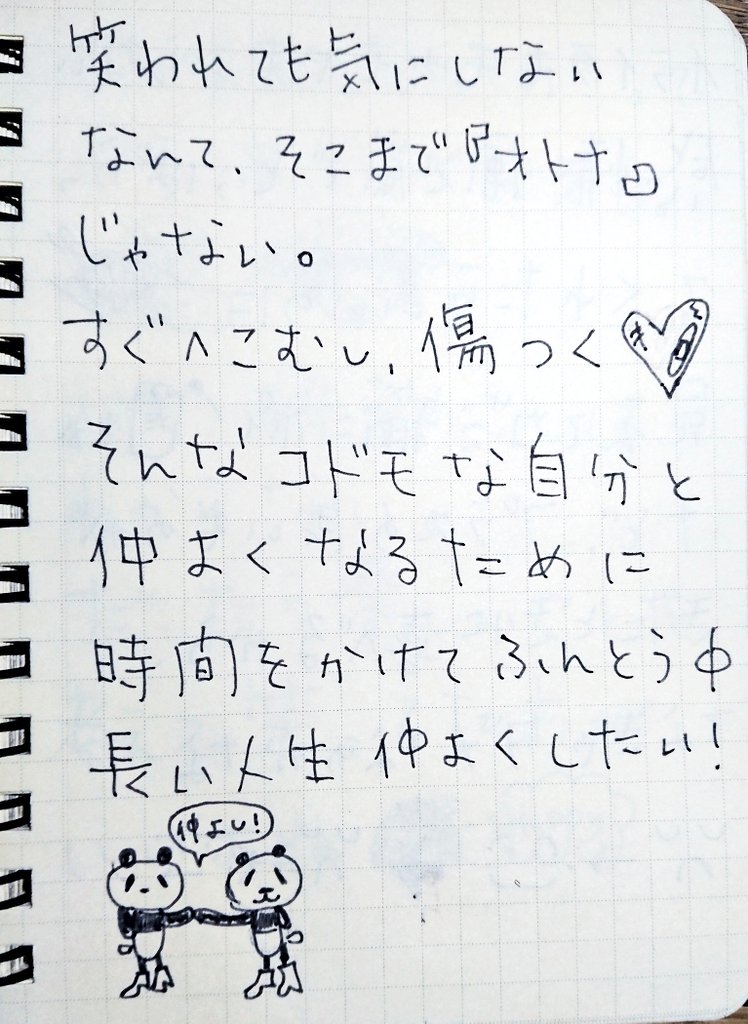 笑われても気にしない
なんて、そこまで『オトナ』
じゃない。
すぐへこむし、傷つく
そんなコドモな自分と
仲よくなるために
時間をかけてふんとう中
長い人生仲よくしたい!
仲よし!